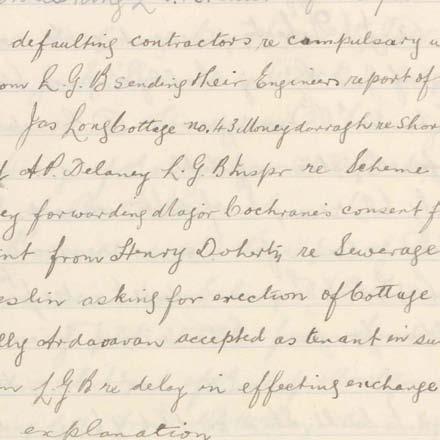 defaulting contractors re compulsary
L.G.B sending their Engineers report of
Jas Long Cottage no. 43 Moneydarragh re Shor
A.P. Delaney L.G.B Inspr re Scheme
ey forwarding Major Cochrane's consent f
nt from Henry Doherty re Sewerage
eslin asking for erection of Cottage
lly Ardaravan accepted as tenant in su
m L.G.B re delay in effecting exchange
explanation